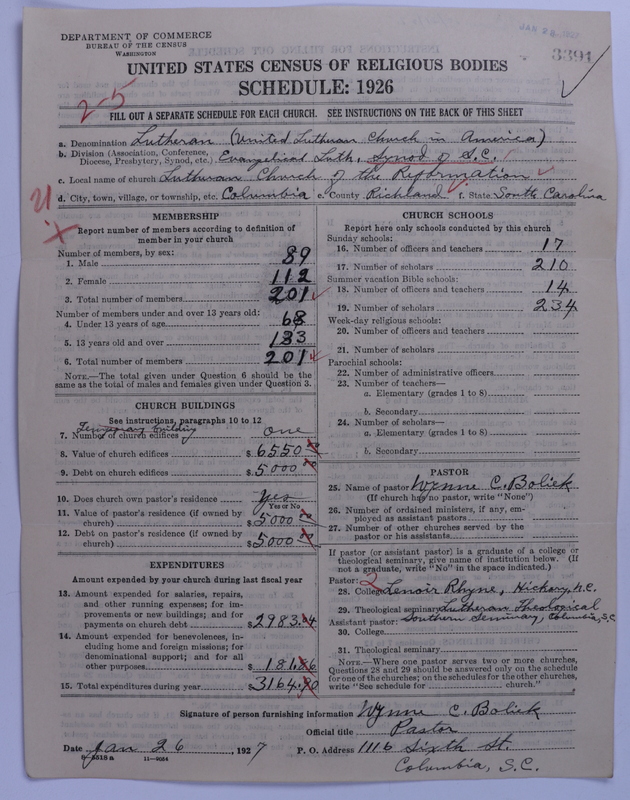 DEPARTMENT OF COMMERCE
BUREAU OF THE CENSUS
WASHINGTON
JAN 28 1927
3391
UNITED STATES CENSUS OF RELIGIOUS BODIES
SCHEDULE: 1926
2-5
FILL OUT A SEPARATE SCHEDULE FOR EACH CHURCH. SEE INSTRUCTIONS ON THE BACK OF THIS SHEET
a. Denomination Lutheran (United Lutheran Church in America)
b. Division (Association, Conference, Diocese, Presbytery, Synod, etc.) Evangelical Luth. Synod of S.C.
c. Local name of church Lutheran Church of the Reformation
d. City, town, village, or township, etc. Columbia e. County Richland f. State South Carolina
MEMBERSHIP
Report number of members according to definition of member in your church
Number of members, by sex:
1. Male 89
2. Female 112
3. Total number of members 201
Number of members under and over 13 years old:
4. Under 13 years of age 68
5. 13 years old and over 133
6. Total number of members 201
NOTE.—The total given under Question 6 should be the same as the total of males and females given under Question 3.
CHURCH BUILDINGS
See instructions, paragraphs 10 to 12
Temporary building
7. Number of church edifices one
8. Value of church edifices $6550.00
9. Debt on church edifices $5000.00
10. Does church own pastor's residence Yes
Yes or No
11. Value of pastor's residence (if owned by church) $5000.00
12. Debt on pastor's residence (if owned by church) $5000.00
EXPENDITURES
Amount expended by your church during last fiscal year
13. Amount expended for salaries, repairs, and other running expenses; for improvements or new buildings; and for payments on church debt $2983.04
14. Amount expended for benevolences, including home and foreign missions; for denominational support; and for all other purposes $181.86
15. Total expenditures during year $3164.90
CHURCH SCHOOLS
Report here only schools conducted by this church
Sunday schools:
16. Number of officers and teachers 17
17. Number of scholars 210
Summer vacation Bible schools:
18. Number of officers and teachers 14
19. Number of scholars 234
Week-day religious schools:
20. Number of officers and teachers
21. Number of scholars
Parochial schools:
22. Number of administrative officers
23. Number of teachers—
a. Elementary (grades 1 to 8)
b. Secondary
24. Number of scholars—
a. Elementary (grades 1 to 8)
b. Secondary
PASTOR
25. Name of pastor Wynne C. Boliek
(If church has no pastor, write "None")
26. Number of ordained ministers, if any, employed as assistant pastors
27. Number of other churches served by the pastor or his assistants
If pastor (or assistant pastor) is a graduate of a college or theological seminary, give name of institution below. (If not a graduate, write "No" in the space indicated.)
Pastor: 2
28. College Lenoir Rhyne, Hickory, N.C.
29. Theological seminary Lutheran Theological
Assistant pastor: Southern Seminary, Columbia, S.C.
30. College
31. Theological seminary
NOTE.—Where one pastor serves two or more churches, Questions 28 and 29 should be answered only on the schedule for one of the churches; on the schedules for the other churches, write "See schedule for church."
Signature of person furnishing information Wynne C. Boliek
Official title Pastor
Date Jan 26, 1927 P. O. Address 1116 Sixth St.
8-5518a 11-9024 Columbia, S.C.